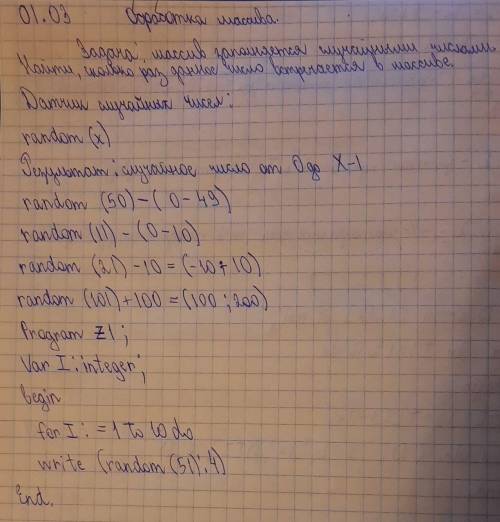 01.03 Обработка массива.
Задача: массив заполняется случайными числами.
Найти, сколько раз данное число встречается в массиве.
Датчик случайных чисел:
random (x)
Результат: случайное число от 0 до X-1
random (50) – ( 0 – 49)
random (11) – (0 – 10)
random (21) – 10 = (-10 ÷ 10)
random (101) + 100 = (100 ; 200)
Program Z1;
Var I: integer;
begin
for I: = 1 To 10 do
write (random (51): 4)
End.